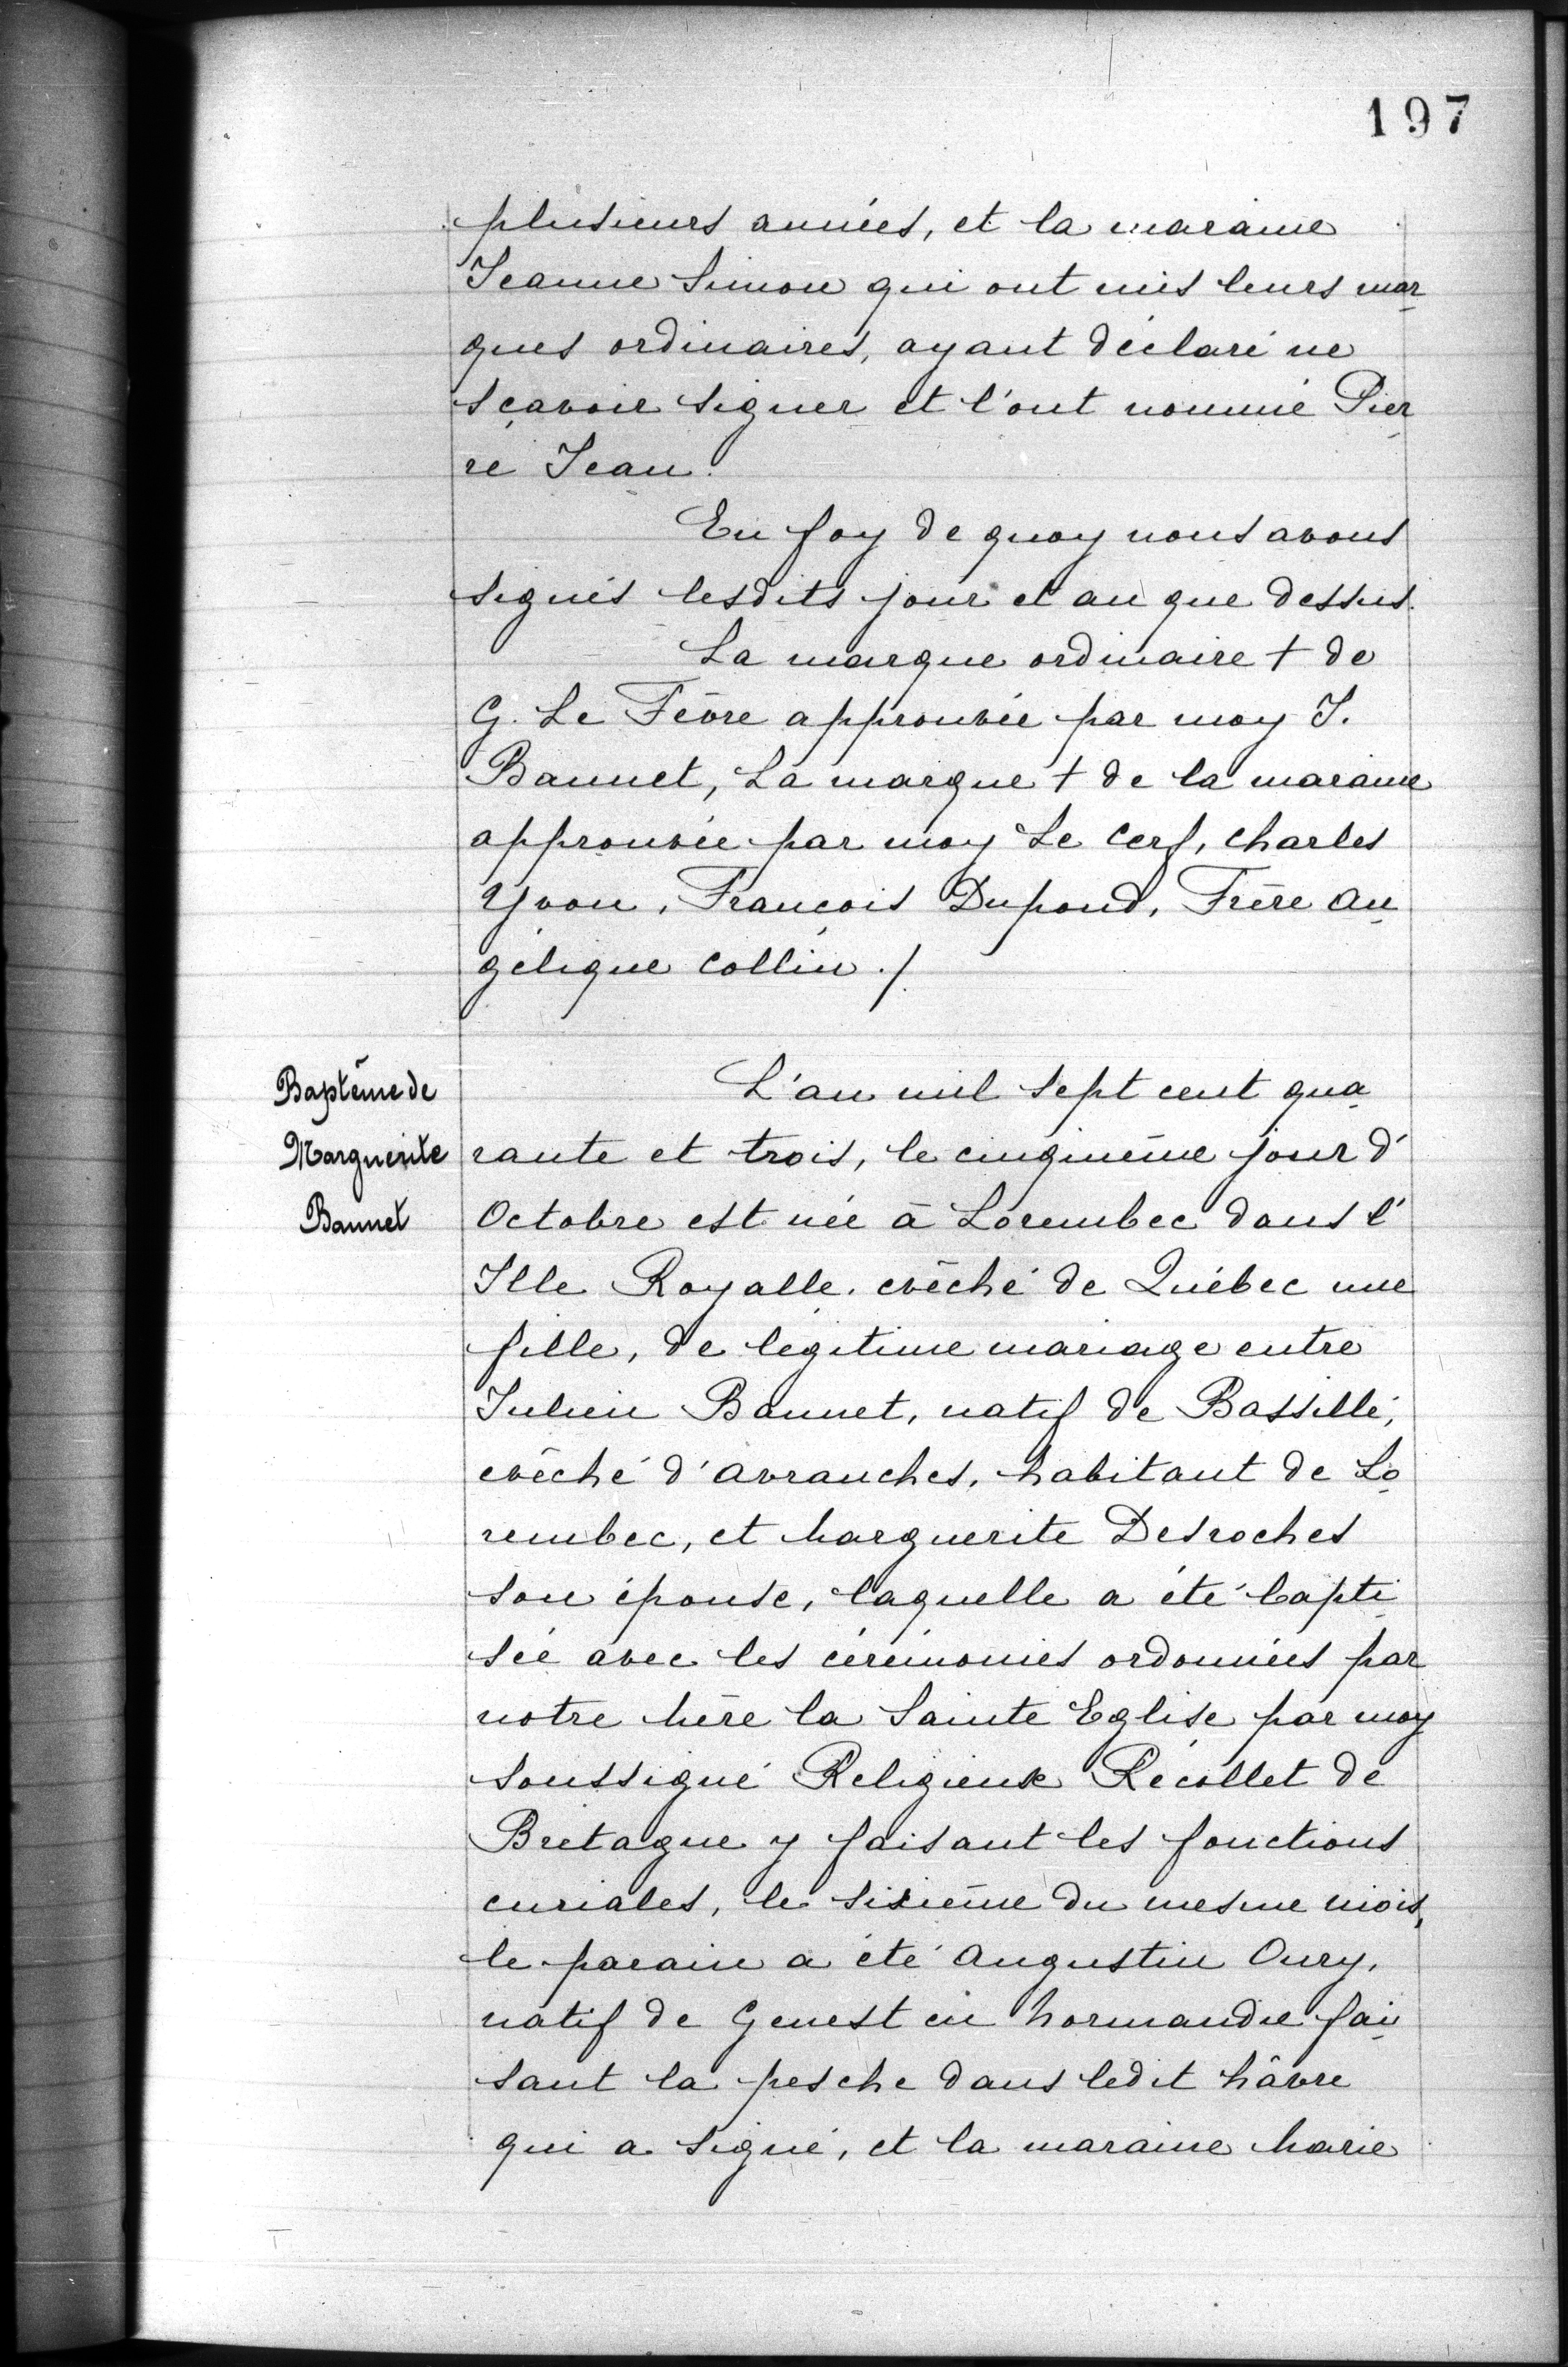 197
plusieurs années, et la maraine
Jeanne Simon qui ont mis leurs mar
ques ordinaires, ayant déclaré ne
sçavoir signer et l'ont nommé Pier
re Jean.
En foy de quoy nous avons
signés lesdits jour et an que dessus.
La marque ordinaire + de
G. Le Fèvre approuvée par moy J.
Bannet, La marque + de la maraine
approuvée par moy Le Cerf, Charles
Yvon, François Dupond, Frère An
gélique Collin ./
Baptême de
Marguerite
Bannet
L'an mil sept cent qua
rante et trois, le cinqmème jour d'
Octobre est née à Lorembec dans l'
Isle Royalle, evêché de Québec une
fille, de légitime mariage entre
Julien Bannet, natif de Bassillé,
evêché d'Avranches, habitant de Lo
rembec, et Marguerite Desroches
son épouse, laquelle a été bapti
sée avec les cérémonies ordonnées par
notre Mère la Sainte Eglise par moy
soussigné Religieux Récollet de
Bretagne y faisant les fonctions
curiales, le sixième du mesme mois,
le parain a été Augustin Oury,
natif de Genest en Normandie fai
sant la pesche dans ledit hâvre
qui a signé, et la maraine Marie